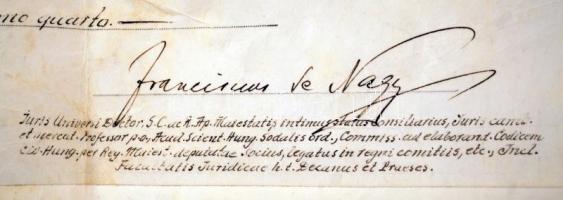 no quarto.
Franciscus de Nagy
Juris Universi Doctor, S. C. ac R. Ap. Maiestatis intimus status consiliarius, Juris camb.
et mercat. Professor p. o., Acad. Scient. Hung. Sodalis ord., Commiss. ad elaborand. Codicem
civ. Hung. per Reg. Maiest. deputatae Socius, Legatus in regni comitiis, etc., Incl.
Facultatis Juridicae h. t. Decanus et Praeses.